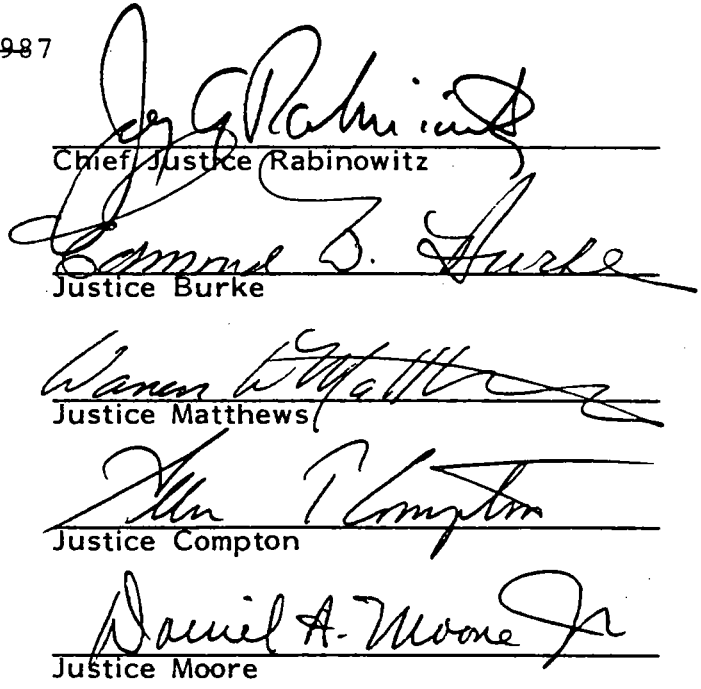 987
Jay A Rabinowitz
Chief Justice Rabinowitz
Edmond W. Burke
Justice Burke
Warren W Matthews
Justice Matthews
Allen T Compton
Justice Compton
Daniel A. Moore Jr
Justice Moore